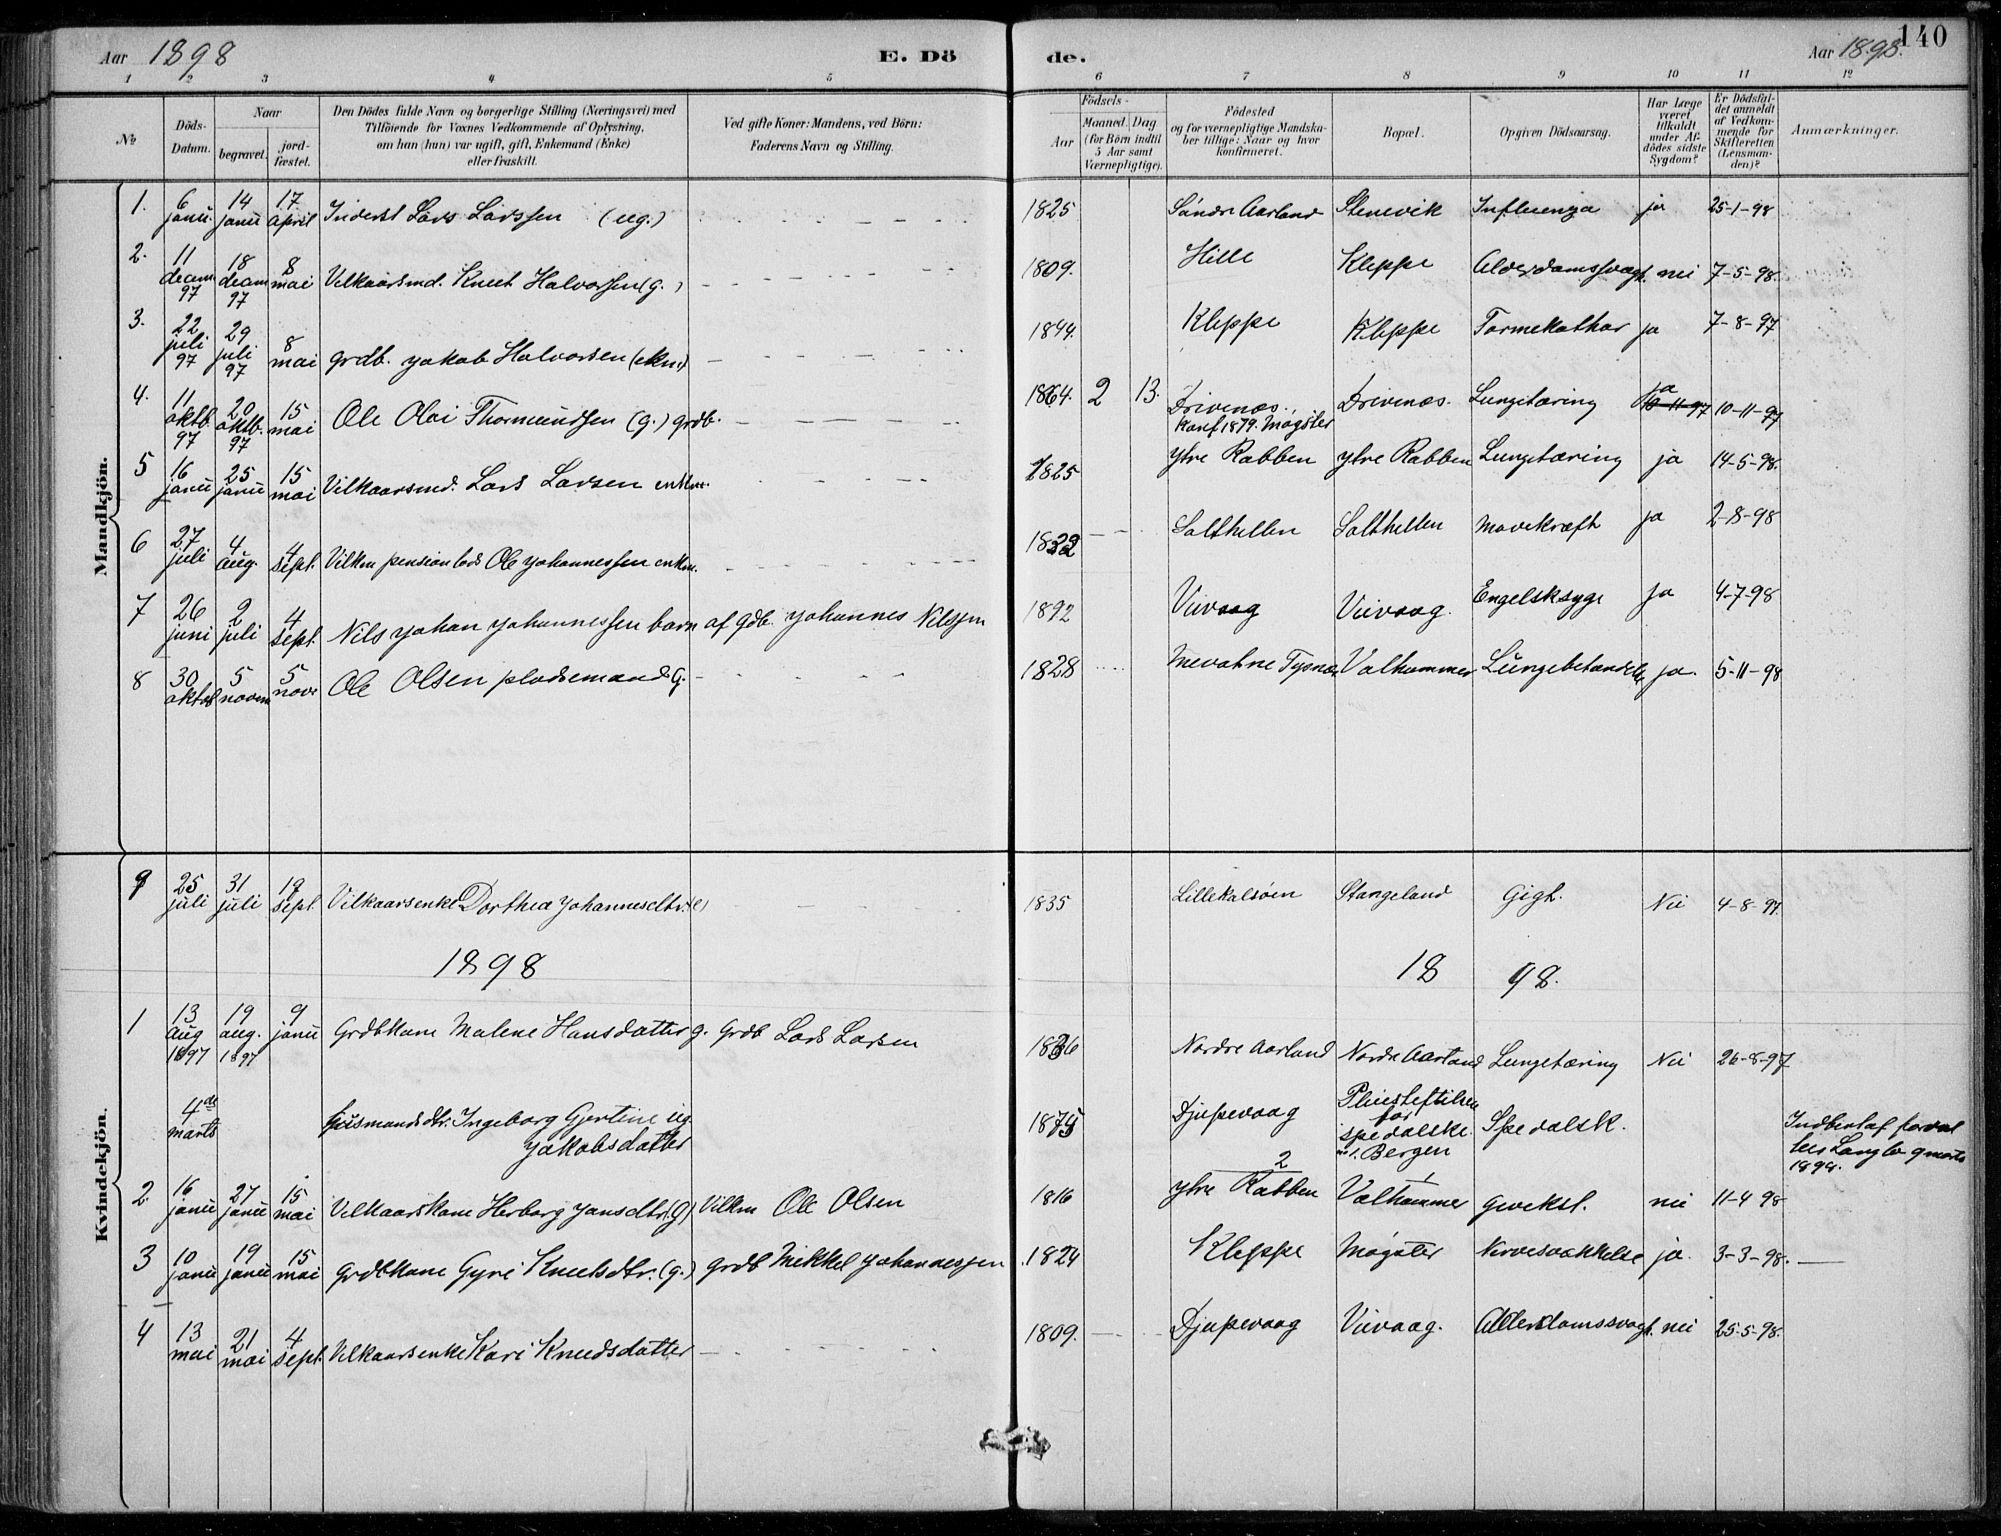 Aar 1898 E. Dö de. Aar 1898. 140
1 2 3 4 5 6 7 8 9 10 11 12
№ Döds-Datum. Naar begravet. jord-fæstet. Den Dödes fulde Navn og borgerlige Stilling (Næringsvei) med Tilföiende for Voxnes Vedkommende af Oplysning, om han (hun) var ugift, gift, Enkemand (Enke) eller fraskilt. Ved gifte Koner: Mandens, ved Börn: Faderens Navn og Stilling. Födsels- Aar Maaned. Dag (for Börn indtil 5 Aar samt Værnepligtige). Födested og for værnepligtige Mandskaber tillige: Naar og hvor konfirmeret. Bopæl. Opgiven Dödsaarsag. Har Læge været tilkaldt under Afdödes sidste Sygdom? Er Dödsfaldet anmeldt af Vedkommende for Skifteretten (Lensmanden)? Anmærkninger.
Mandkjön.
1. 6 janu. 14 janu 17 April Inderst Lars Larssen (ug.) 1825 Söndre Aarland Stenevik Influenza ja 25-1-98
2. 11 decem 97 18 decem 97 8 mai Vilkaarsmd. Knut Halvorsen (g.) 1809. Hille Kleppe Alderdamssvagh. nei 7-5-98.
3. 22 juli 97 29 juli 97 8 mai grdb. Jakob Halvorsen (ekm) 1844. Kleppe Kleppe Tarmekathar ja 7-8-97
4. 11 oktb. 97 20 oktb. 97 15 mai Ole Olai Thormundsen (g.) grdb. 1864. 2 13. Drivenæs. Konf 1879. Møgster Drivenæs. Lungetæring ja 10-11-97 10-11-97
5 16 janu 25 janu 15 mai Vilkaarsmd. Lars Larsen enkm. 1825 ytre Rabben ytre Rabben Lungetæring ja 14-5-98.
6 27 juli 4 aug. 4 sept. Vilkm pension lods Ole Johannessen enkm. 1832 Salthellen Salthellen Mavekræft ja 2-8-98
7 26 juni 2 juli 4 sept. Nils Johan Johannessen barn af gdb. Johannes Nilssen 1892 Viivaag Viivaag. Engelsksyge ja 4-7-98
8 30 oktob 5 novem 5 nove Ole Olsen pladsemand G. 1828 Mevatne Tysnæs Valhammer Lungebetændelse ja. 5-11-98
Kvindekjön.
9 25 juli 31 juli 19 sept. Vilkaarsenke Dorthea Johannesdtr. (e) 1835 Lillekalsöen Stangeland Gigt. Nei 4-8-97.
1898 18 98.
1 13 aug 1897 19 aug. 1897 9 janu Grdbkone Malene Hansdatter g. Grdb Lars Larsen 1836 Nordre Aarland Nordr Aarland Lungetæring Nei 26-8-97
4de marts husmandsdtr. Ingeborg Gjertine ug. Jakobsdatter 1875 Djupevaag Pleiestiftelsen for spedalske. Bergen Spedalsk. Indberl af 9 marts 1898.
2. 16 janu 27 janu 15 mai Vilkaarskone Herborg Jansdtr. (G) Vilkm Ole Olsen 1816 2 ytre Rabben Valhammer nei 11-4 98
3 10 janu 19 janu 15 mai Grdbkone Gyri Knutsdtr. (g.) grdb Mikkel Johannessen 1824 Kleppe Møgster Nervesvækkelse ja. 3-3-98.
4 13 mai 21 mai 4 sept. Vilkaarsenke Kari Knudsdatter 1809. Djupevaag Viivaag. Alderdomssvagh. nei 25-5-98.